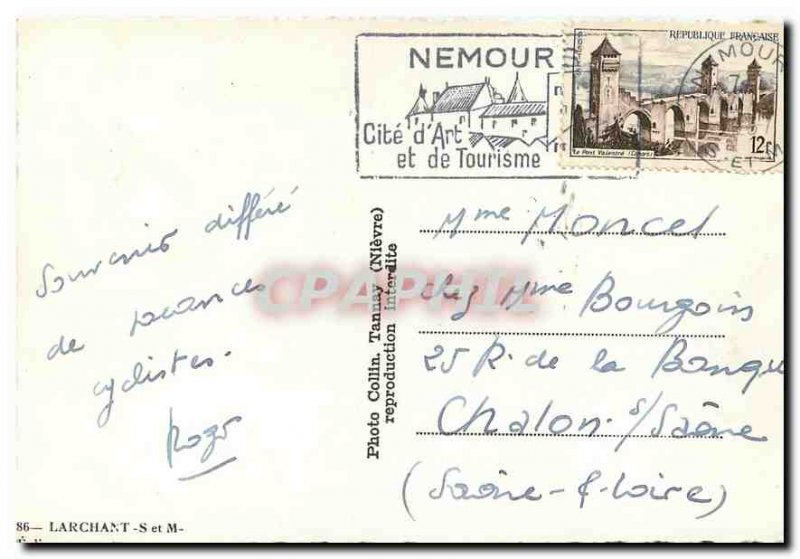 NEMOUR
Cité d'Art
et de Tourisme
REPUBLIQUE FRANÇAISE
12F
Le Pont Valentré (Cahors)
NEMOUR
ET
Souvenir différé
de vacances
cyclistes.
Photo Collin. Tannay (Nièvre)
reproduction interdite
CPAPHIL
Mme Moncel
chez Mme Bourgois
25 R. de la Banque
Chalon s/Saône
(Saône-&-Loire)
86— LARCHANT -S et M-